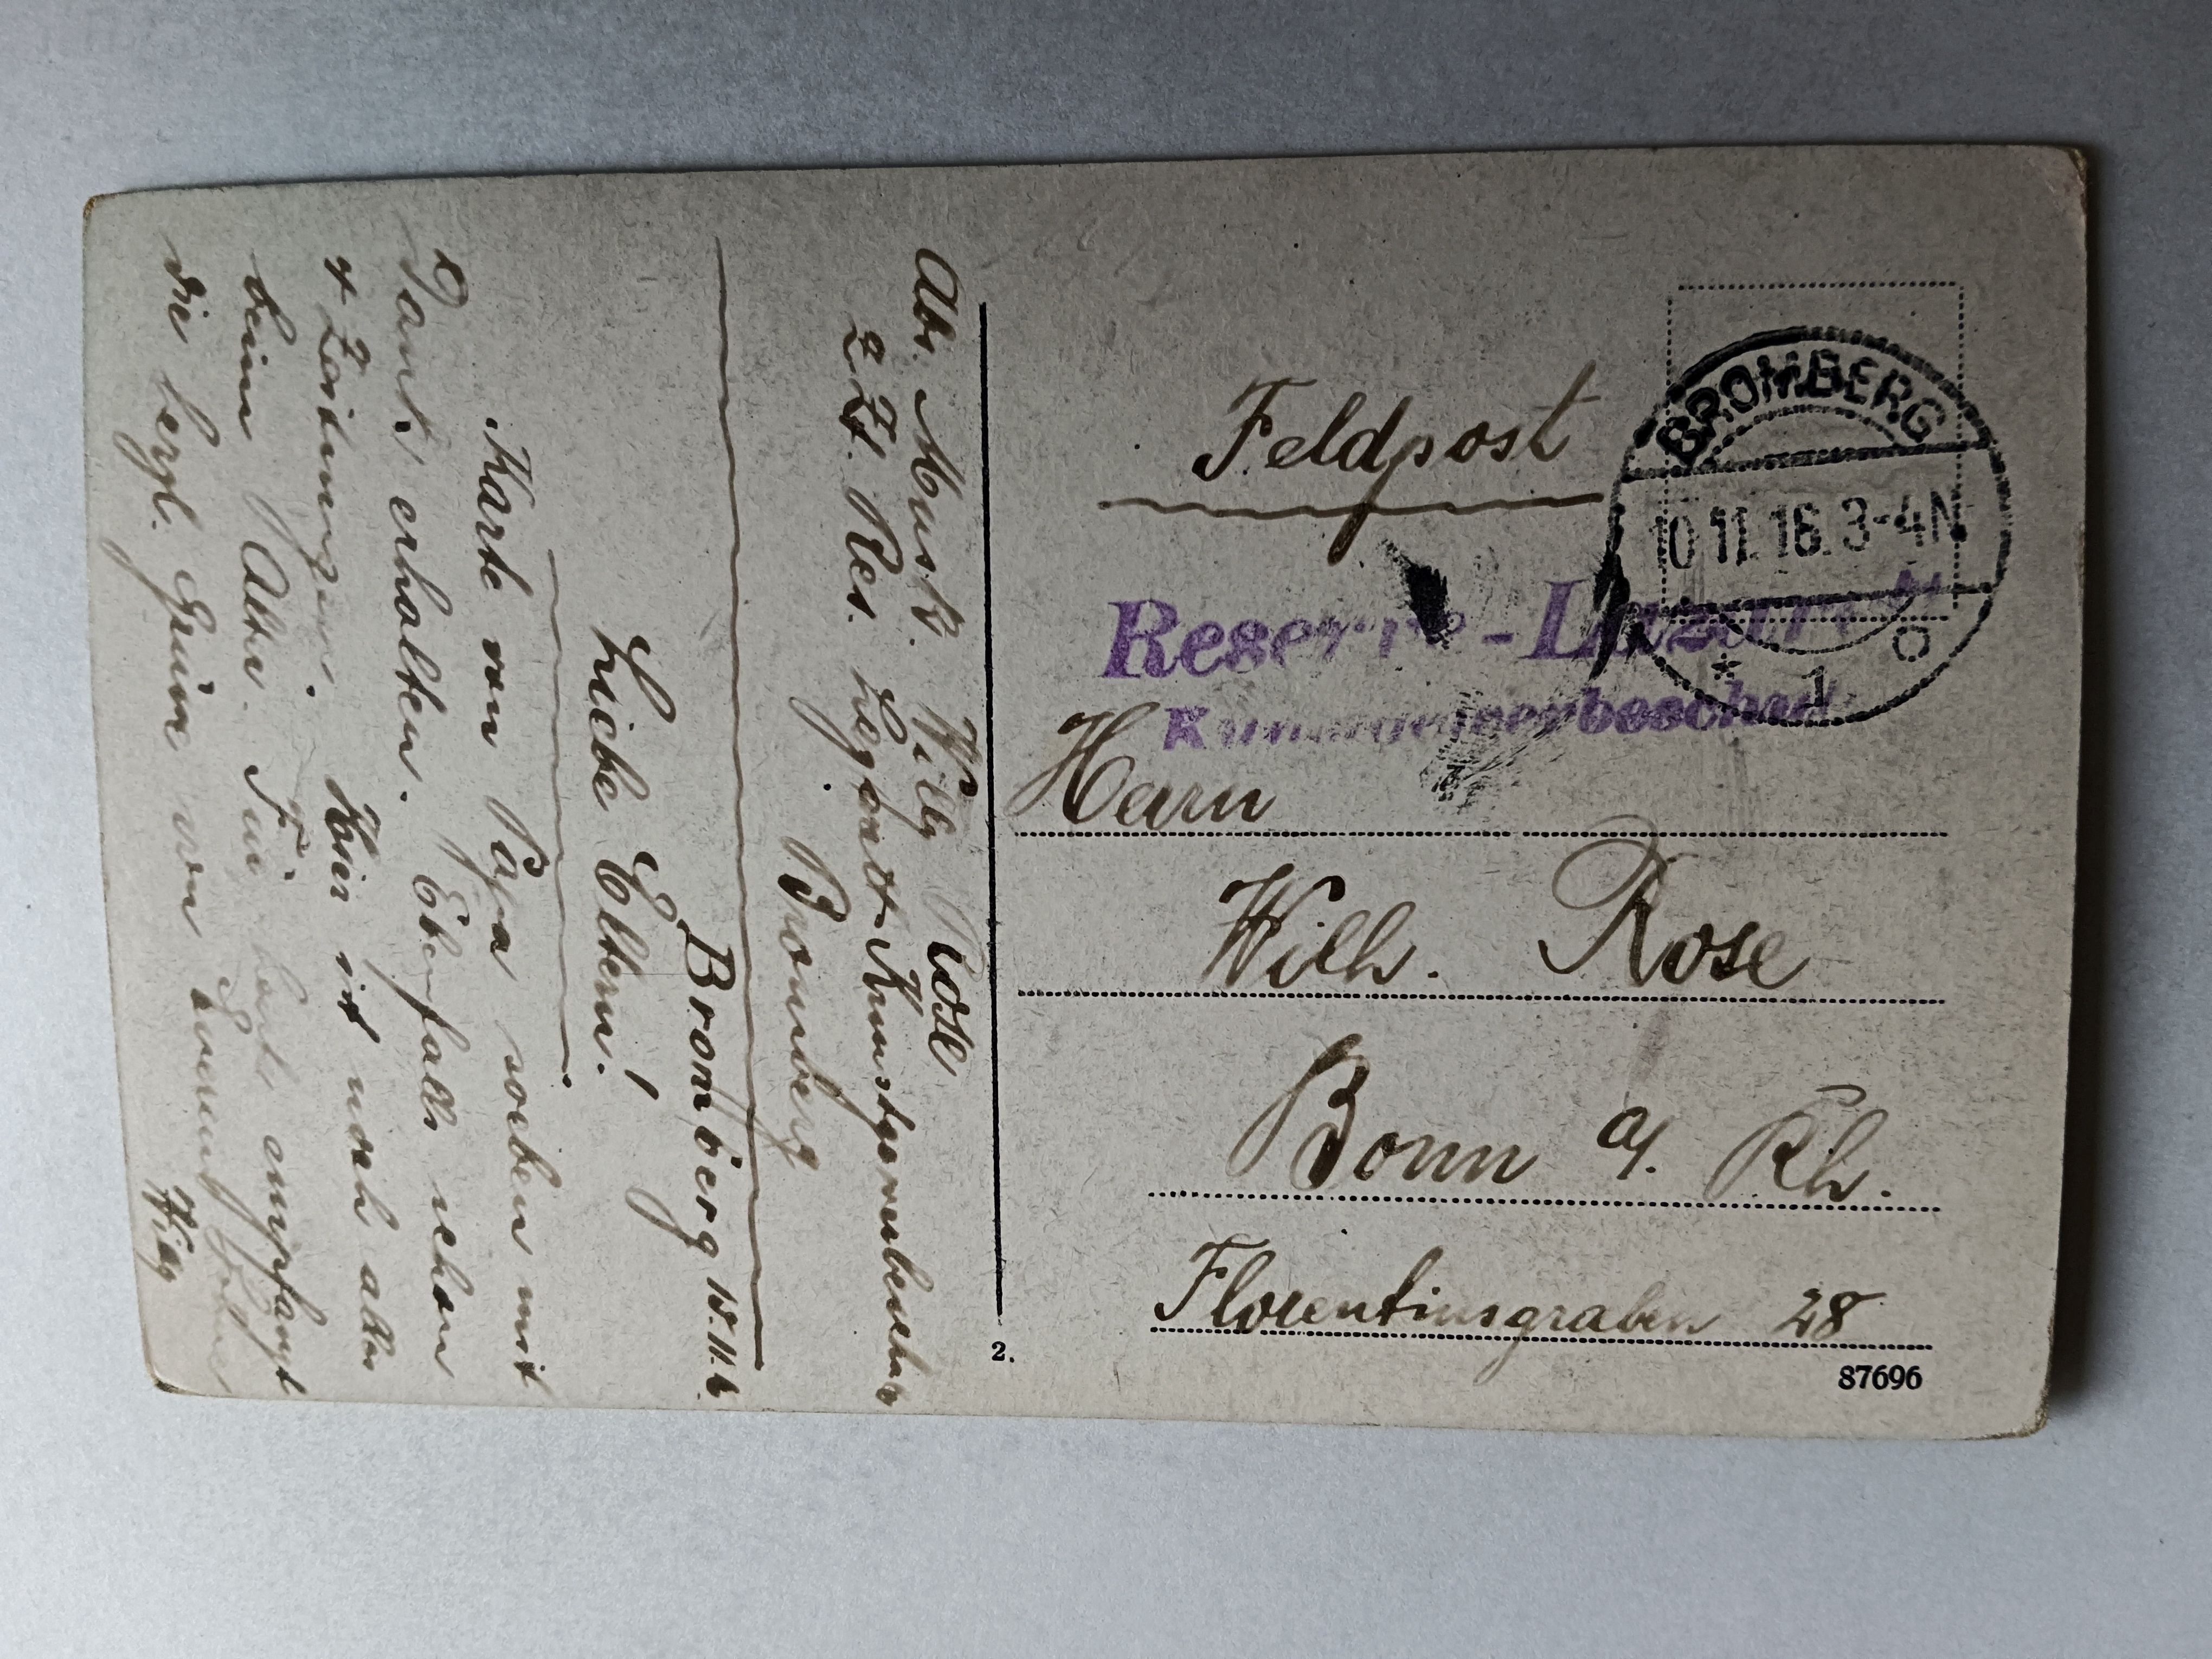 Feldpost
BROMBERG
10.11.16.3-4N
* 1 o
Reserve-Lazarett
Kunstgewerbeschule
Herrn
Wilh. Rose
Bonn a/. Rh.
Florentinsgraben 28
87696
2.
Abs. Musk. Willy Rose
z. Zt. Res. Lazarett Kunstgewerbeschule
Bromberg
Bromberg 10.11.16.
Liebe Eltern!
Karte von Papa soeben mit
Dank erhalten. Ebenfalls schon
Zeitungen. Hier ist noch alles
beim Alten. Für heute empfangt
die herzl. Grüße von Eurem
Willy